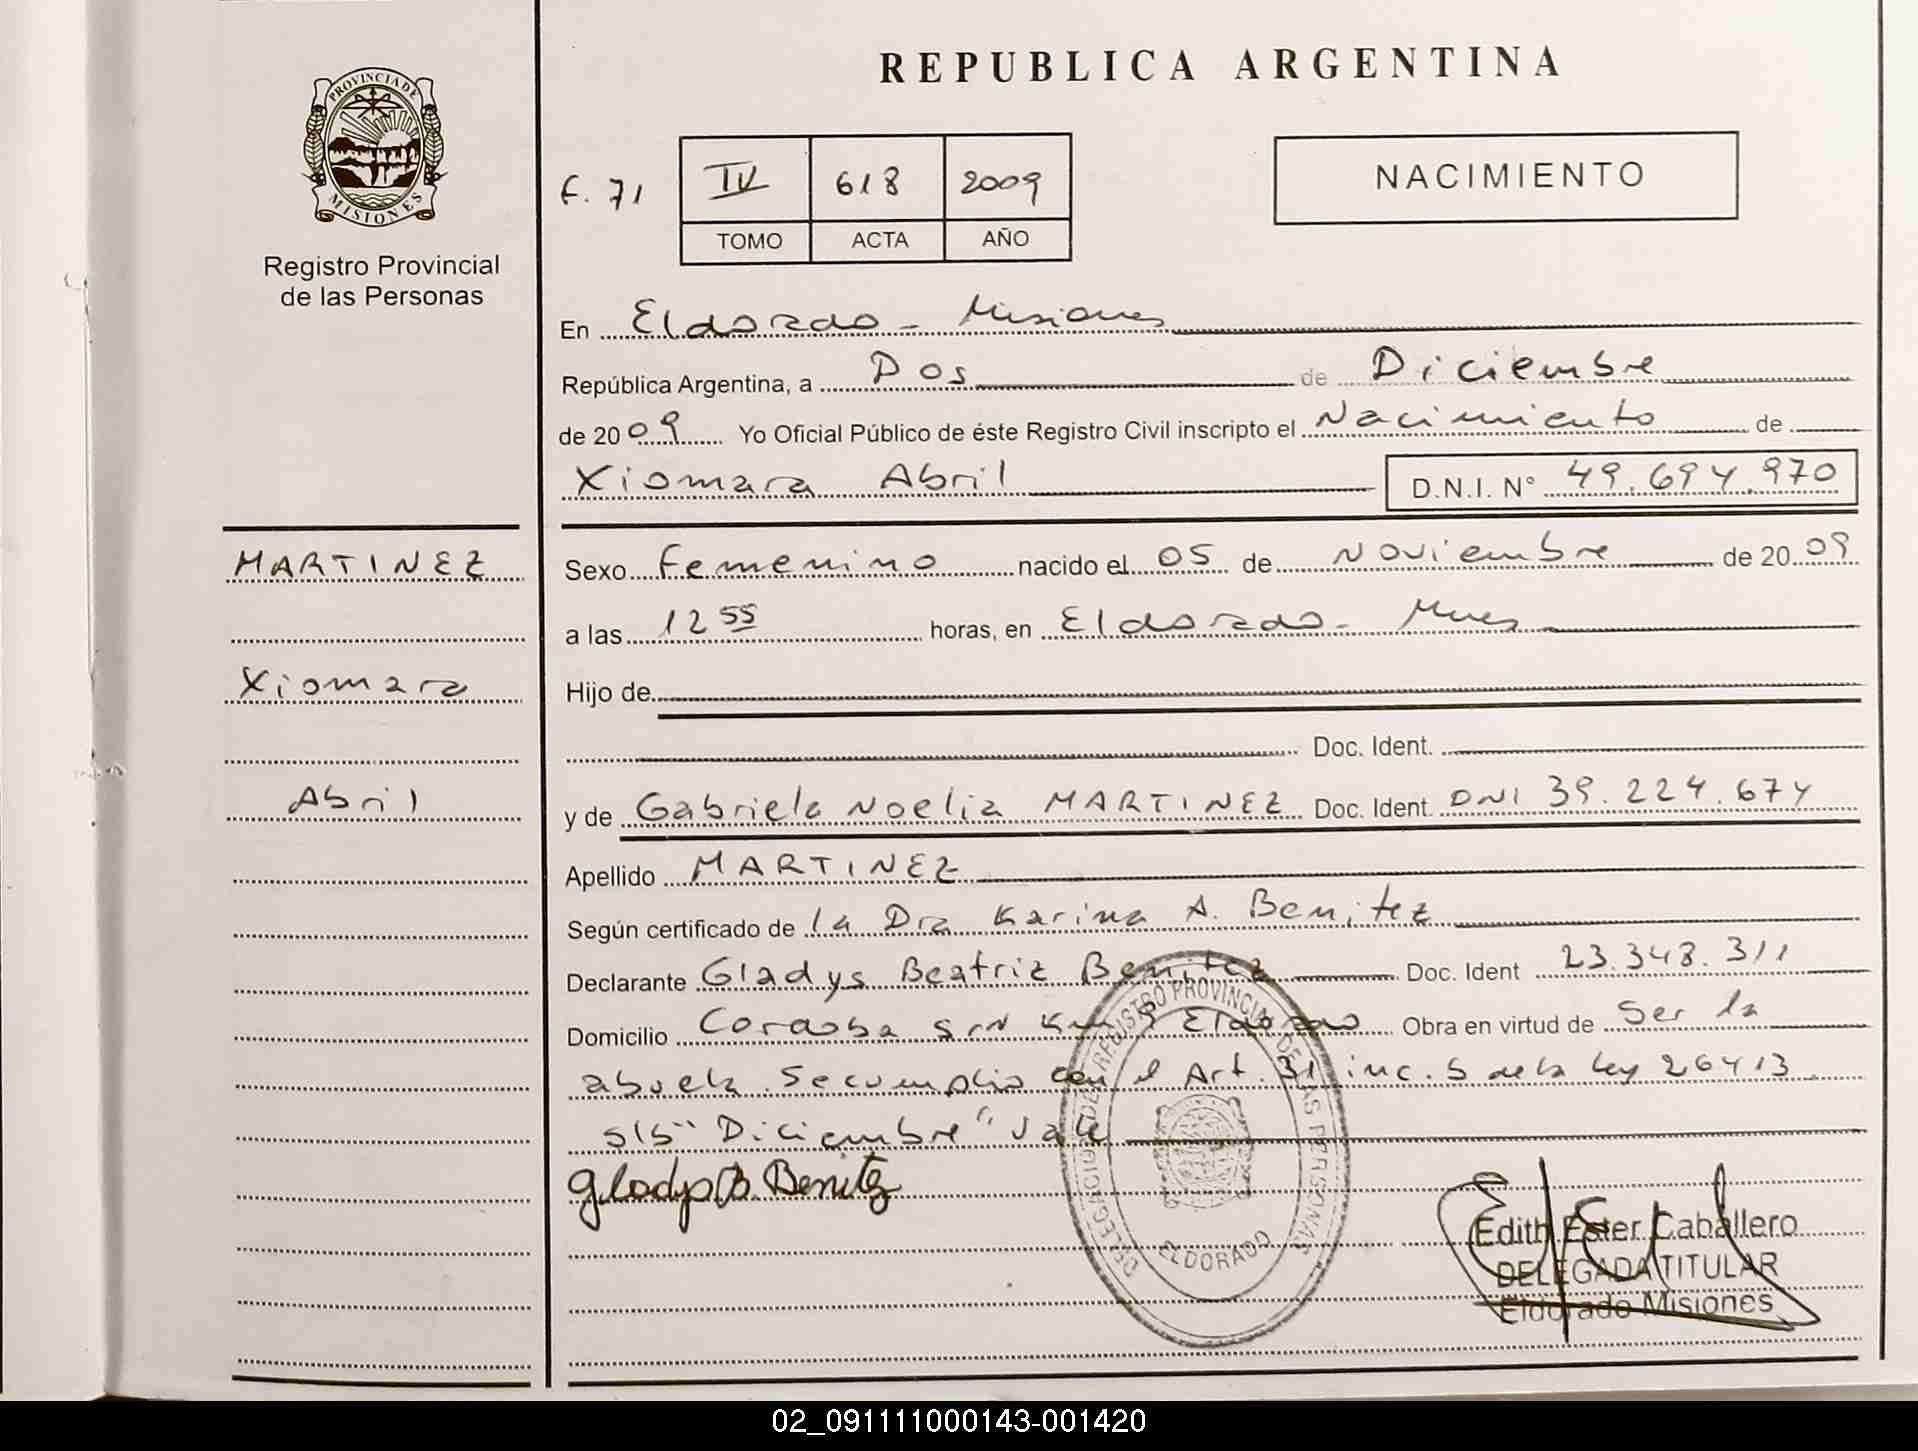 PROVINCIA DE
MISIONES
Registro Provincial
de las Personas
REPUBLICA ARGENTINA
F. 71
IV 618 2009
TOMO ACTA AÑO
NACIMIENTO
En Eldorado - Misiones
República Argentina, a Dos de Diciembre
de 2009 Yo Oficial Público de éste Registro Civil inscripto el Nacimiento de
Xiomara Abril D.N.I. N° 49.694.970
MARTINEZ
Xiomara
Abril
Sexo Femenino nacido el 05 de Noviembre de 2009
a las 12 55 horas, en Eldorado - Mnes
Hijo de
Doc. Ident.
y de Gabriela Noelia MARTINEZ Doc. Ident. DNI 39.224.674
Apellido MARTINEZ
Según certificado de la Dra Karina A. Benitez
Declarante Gladys Beatriz Benitez Doc. Ident 23.348.311
Domicilio Cordoba S/N Km 9 Eldorado Obra en virtud de Ser la
abuela. Se cumplio con el Art. 31 inc. 5 de la Ley 26413.
S/b "Diciembre" Vale
Gladys B. Benitez
DELEGACION DE REGISTRO PROVINCIAL DE LAS PERSONAS
ELDORADO
Edith Ester Caballero
DELEGADA TITULAR
Eldorado Misiones
02_091111000143-001420